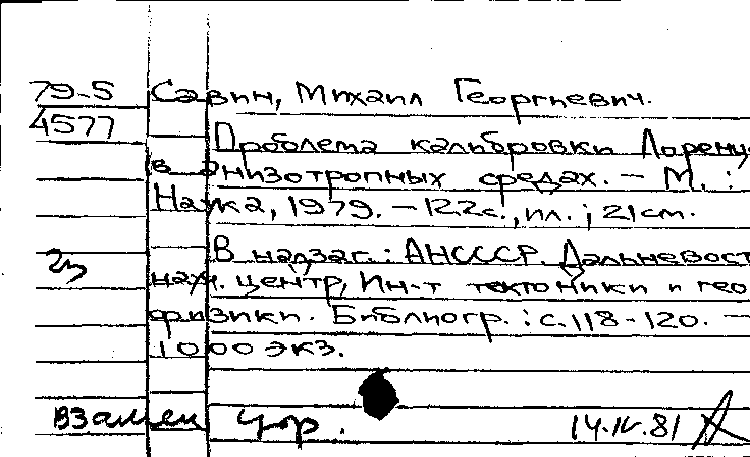 79-5 Савин, Михаил Георгиевич.
4577
Проблема калибровки Лоренц
в анизотропных средах. — М. :
Наука, 1979. — 122с., ил. ; 21 см.
В надзаг. : АН СССР. Дальневост
науч. центр, Ин-т тектоники и гео
физики. Библиогр. : с. 118-120. —
1000 экз.
Взамен утр. 14.IV.81